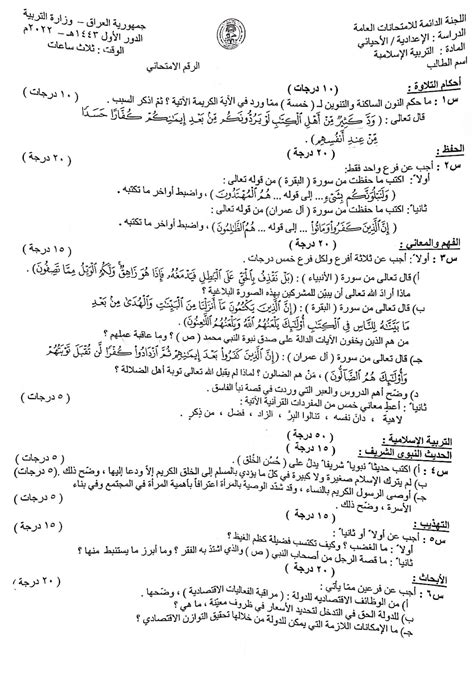 اللجنة الدائمة للامتحانات العامة
الدراسة : الإعدادية / الأحيائي
المادة : التربية الإسلامية
اسم الطالب
جمهورية العراق – وزارة التربية
الدور الأول ١٤٤٣هـ - ٢٠٢٢م
الوقت : ثلاث ساعات
الرقم الامتحاني
أحكام التلاوة : ( ١٠ درجات )
س١ : ما حكم النون الساكنة والتنوين لـ ( خمسة ) ممّا ورد في الآية الكريمة الآتية ؟ ثم اذكر السبب . ( ١٠ درجات )
قال تعالى : ( وَدَّ كَثِيرٌ مِّنْ أَهْلِ الْكِتَابِ لَوْ يَرُدُّونَكُم مِّنْ بَعْدِ إِيمَانِكُمْ كُفَّارًا حَسَدًا
مِّنْ عِندِ أَنفُسِهِم ) .
الحفظ : ( ٢٠ درجة )
س٢ : أجب عن فرع واحد فقط: ( ٢٠ درجة )
أولاً: اكتب ما حفظت من سورة ( البقرة ) من قوله تعالى :
( وَلَنَبْلُوَنَّكُم بِشَيْءٍ ... إلى قوله ... هُمُ الْمُهْتَدُونَ ) ، واضبط أواخر ما تكتبه .
ثانياً: اكتب ما حفظت من سورة ( آل عمران ) من قوله تعالى :
( إِنَّ الَّذِينَ كَفَرُوا وَمَاتُوا ... إلى قوله ... هُمُ الظَّالِمُونَ ) ، واضبط أواخر ما تكتبه .
الفهم والمعاني : ( ٢٠ درجة )
س٣ : أولاً: أجب عن ثلاثة أفرع ولكل فرع خمس درجات : ( ١٥ درجة )
أ) قال تعالى من سورة ( الأنبياء ) : ( بَلْ نَقْذِفُ بِالْحَقِّ عَلَى الْبَاطِلِ فَيَدْمَغُهُ فَإِذَا هُوَ زَاهِقٌ وَلَكُمُ الْوَيْلُ مِمَّا تَصِفُونَ ) .
ماذا أراد الله تعالى أن يبيّن للمشركين بهذه الصورة البلاغية ؟
ب) قال تعالى من سورة ( البقرة ) : ( إِنَّ الَّذِينَ يَكْتُمُونَ مَا أَنزَلْنَا مِنَ الْبَيِّنَاتِ وَالْهُدَىٰ مِنْ بَعْدِ
مَا بَيَّنَّاهُ لِلنَّاسِ فِي الْكِتَابِ أُولَٰئِكَ يَلْعَنُهُمُ اللَّهُ وَيَلْعَنُهُمُ اللَّاعِنُونَ ) .
من هم الذين يخفون الآيات الدالة على صدق نبوة النبي محمد ( ص ) ؟ وما عاقبة عملهم ؟
جـ) قال تعالى من سورة ( آل عمران ) : ( إِنَّ الَّذِينَ كَفَرُوا بَعْدَ إِيمَانِهِمْ ثُمَّ ازْدَادُوا كُفْرًا لَّن تُقْبَلَ تَوْبَتُهُمْ
وَأُولَٰئِكَ هُمُ الضَّالُّونَ ) ، مَنْ هم الضالون ؟ لماذا لم يقبل الله تعالى توبة أهل الضلالة ؟
د) وضح أهم الدروس والعبر التي وردت في قصة نبأ الفاسق .
ثانياً : أعطِ معاني خمس من المفردات القرآنية الآتية : ( ٥ درجات )
لاهية ، دانَ نفسه ، تنالوا البرَّ ، الزاد ، فضل ، من ذِكرٍ .
التربية الإسلامية : ( ٥٠ درجة )
الحديث النبوي الشريف : ( ١٥ درجة )
س٤ : أ) اكتب حديثاً نبوياً شريفاً يدلّ على ( حُسْن الخُلق ) . ( ٥ درجات )
ب) لم يترك الإسلام صغيرة ولا كبيرة في كلّ ما يؤدي بالمسلم إلى الخلق الكريم إلاّ ودعا إليها ، وضّح ذلك . ( ٥ درجات )
جـ) أوصى الرسول الكريم بالنساء ، وقد شدّد الوصية بالمرأة اعترافاً بأهمية المرأة في المجتمع وفي بناء
الأسرة ، وضّح ذلك . ( ٥ درجات )
التهذيب : ( ١٥ درجة )
س٥ : أجب عن أولاً أو ثانياً : ( ١٥ درجة )
أولاً : ما الغضب ؟ وكيف تكتسب فضيلة كظم الغيظ ؟
ثانياً : ما قصة الرجل من أصحاب النبي ( ص ) والذي اشتدّ به الفقر ؟ وما أبرز ما يستنبط منها ؟
الأبحاث : ( ٢٠ درجة )
س٦ : أجب عن فرعين ممّا يأتي : ( ٢٠ درجة )
أ) من الوظائف الاقتصاديه للدولة : ( مراقبة الفعاليات الاقتصادية ) ، وضّحها .
ب) للدولة الحق في التدخل لتحديد الأسعار في ظروف معيّنة ، ما هي ؟
جـ) ما الإمكانات اللازمة التي يمكن للدولة من خلالها تحقيق التوازن الاقتصادي ؟